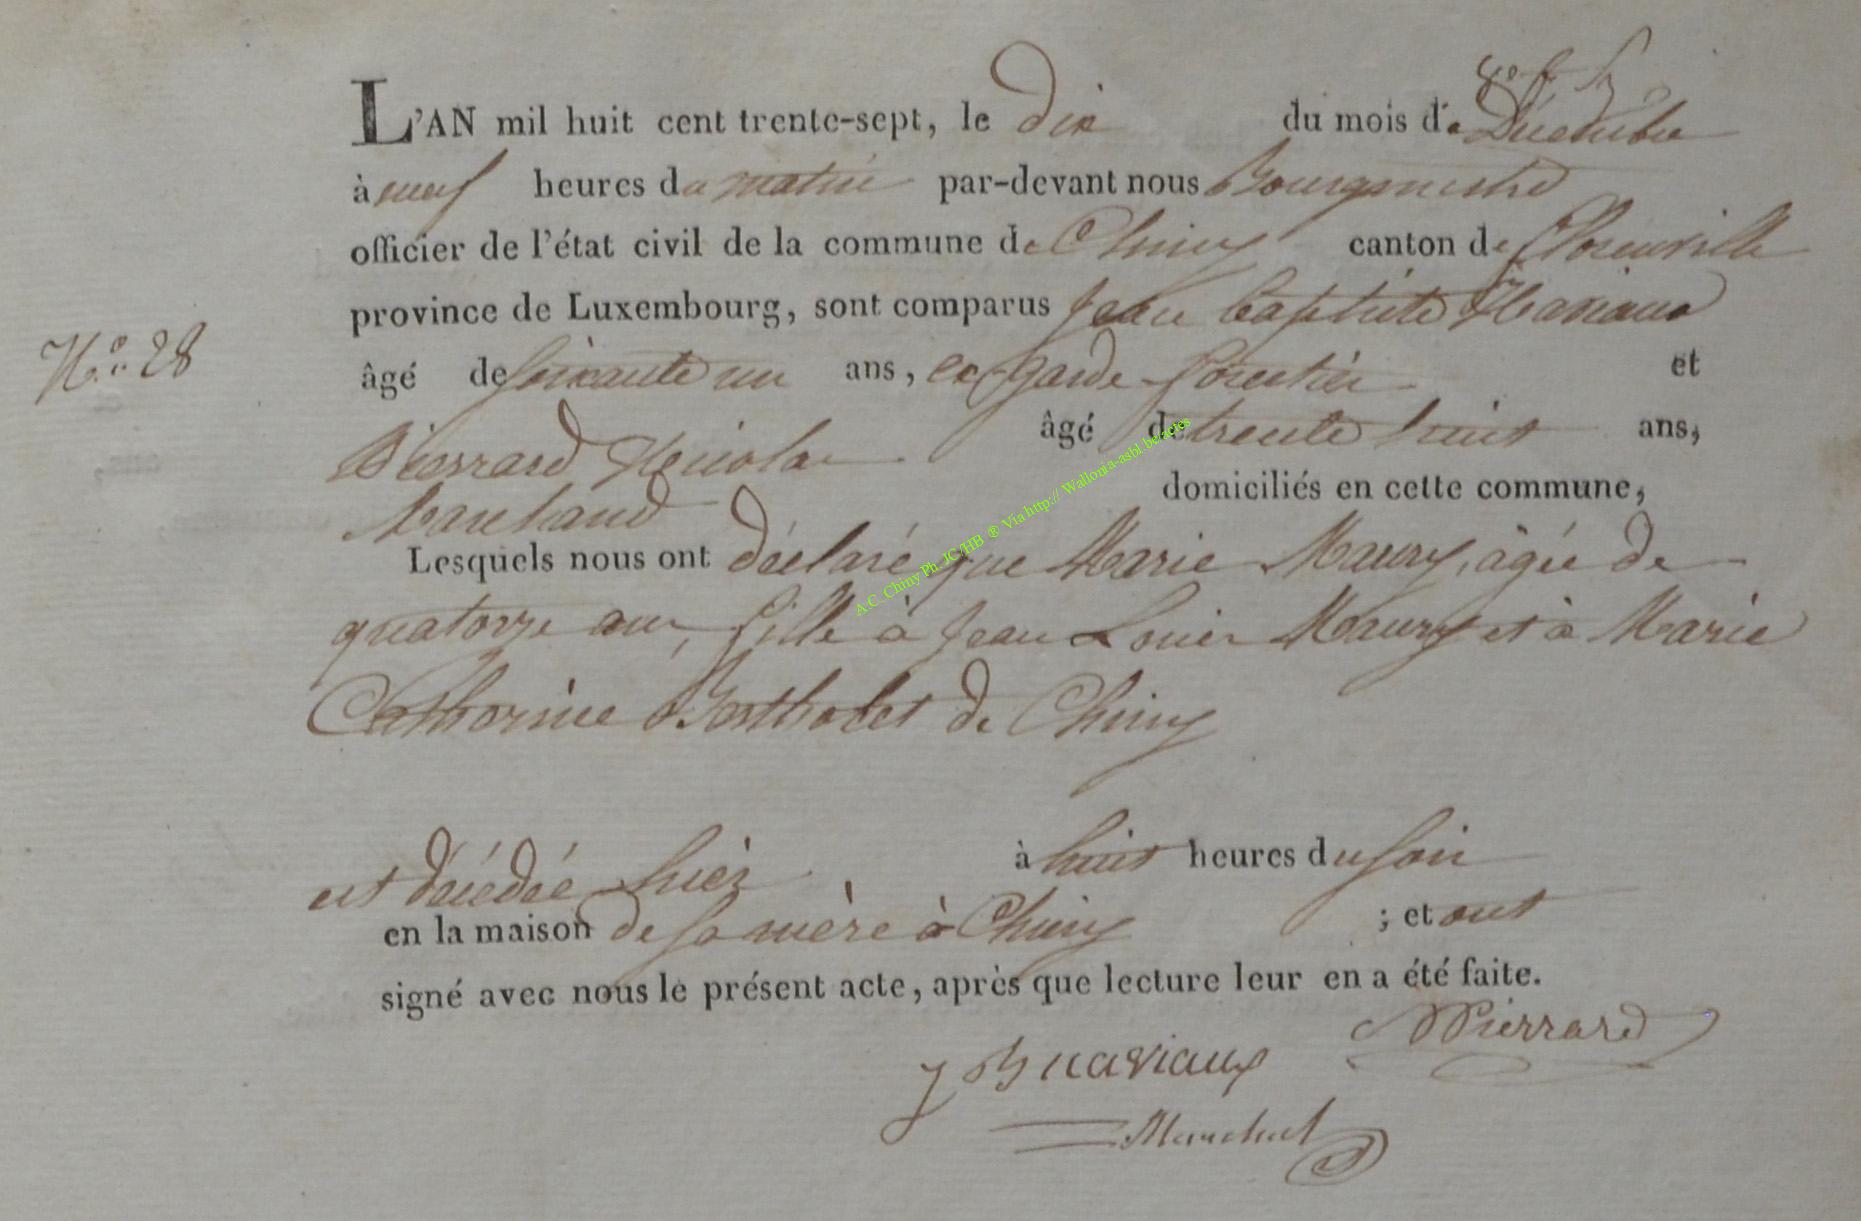 L'AN mil huit cent trente-sept, le dix du mois de Décembre
à neuf heures du matin par-devant nous Bourgmestre
officier de l'état civil de la commune de Chiny canton de Florenville
province de Luxembourg, sont comparus Jean Baptiste Haviaux
N.° 28
âgé de soixante un ans, ex garde forestier et
Pierrard Nicolas âgé de trente huit ans,
Marchand domiciliés en cette commune,
Lesquels nous ont déclaré que Marie Maury, âgée de
quatorze ans, fille à Jean Louis Maury et à Marie
Catherine Bertholet de Chiny
est décédée hier à huit heures du soir
en la maison de sa mère à Chiny ; et ont
signé avec nous le présent acte, après que lecture leur en a été faite.
N Pierrard
J B haviaux
Marchal
A.C. Chiny Ph. JC/HB ® Via http:// Wallonia-asbl.be/actes